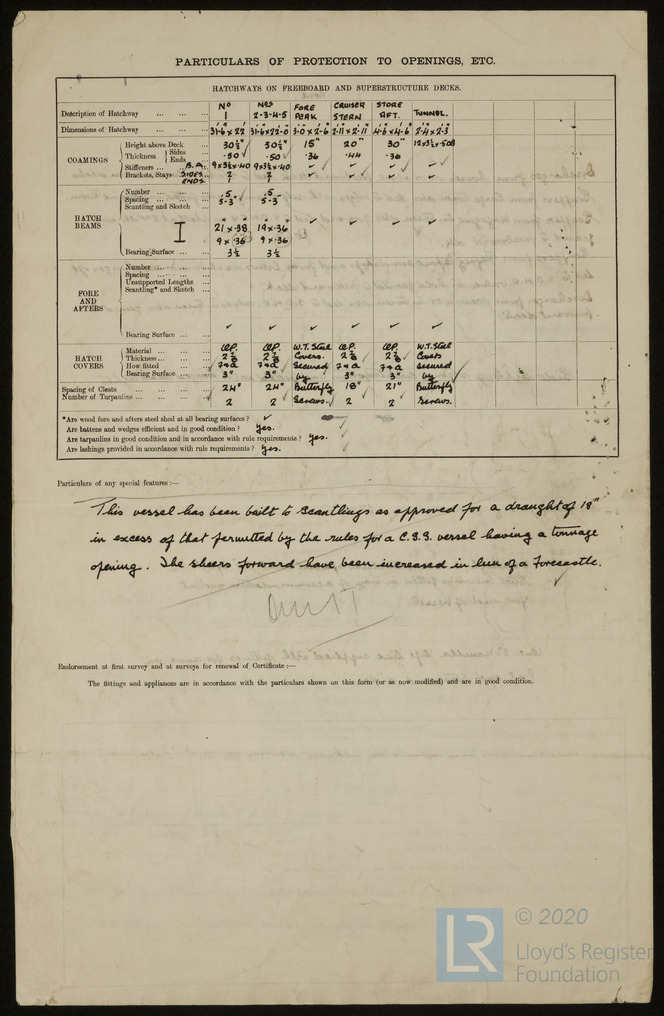 PARTICULARS OF PROTECTION TO OPENINGS, ETC.
HATCHWAYS ON FREEBOARD AND SUPERSTRUCTURE DECKS.
Description of Hatchway ... ... ... No 1 Nos 2-3-4-5 FORE PEAK CRUISER STERN STORE AFT. TUNNEL.
Dimensions of Hatchway ... ... ... 31'-6"x22' 31'-6"x22'-0 3'-0"x2'-6" 2'-11"x2'-11" 4'-6"x4'-6" 2'-4"x2'-3"
COAMINGS
Height above Deck ... 30½" 30½" 15" 20" 30"
Thickness { Sides ... Ends ... .50 .50 .36 .44 .36
Stiffeners ... ... B.A. 9x3½x.40 9x3½x.40
Brackets, Stays SIDES 2 2
ENDS 1 1
HATCH BEAMS
Number ... ... ... 5 5
Spacing ... ... ... 5'-3" 5'-3"
Scantling and Sketch
I 21"x.38 19"x.36
9x.36 9x.36
Bearing Surface ... ... 3½ 3½
FORE AND AFTERS
Number ... ... ...
Spacing ... ... ...
Unsupported Lengths ...
Scantling* and Sketch ...
Bearing Surface ... ...
HATCH COVERS
Material ... ... ... W.T. Steel W.T. Steel
Thickness ... ... ... Covers. Covers
How fitted ... ... F & A F & A Secured F & A F & A secured
Bearing Surface ... ... 3" 3" by 3" 3" by
Spacing of Cleats ... ... ... ... 24" 24" Butterfly 18" 21" Butterfly
Number of Tarpaulins ... ... ... ... 2 2 Screws. 2 2 Screws.
*Are wood fore and afters steel shod at all bearing surfaces ?
Are battens and wedges efficient and in good condition ? yes.
Are tarpaulins in good condition and in accordance with rule requirements ? yes.
Are lashings provided in accordance with rule requirements ? yes.
Particulars of any special features :—
This vessel has been built to scantlings as approved for a draught of 18"
in excess of that permitted by the rules for a C.S.S. vessel having a tonnage
opening. The sheers forward have been increased in lieu of a Forecastle.
Endorsement at first survey and at surveys for renewal of Certificate :—
The fittings and appliances are in accordance with the particulars shown on this form (or as now modified) and are in good condition.
LR
© 2020
Lloyd's Register
Foundation